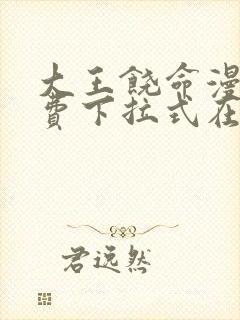 大王饶命漫
费下拉式在
君远然